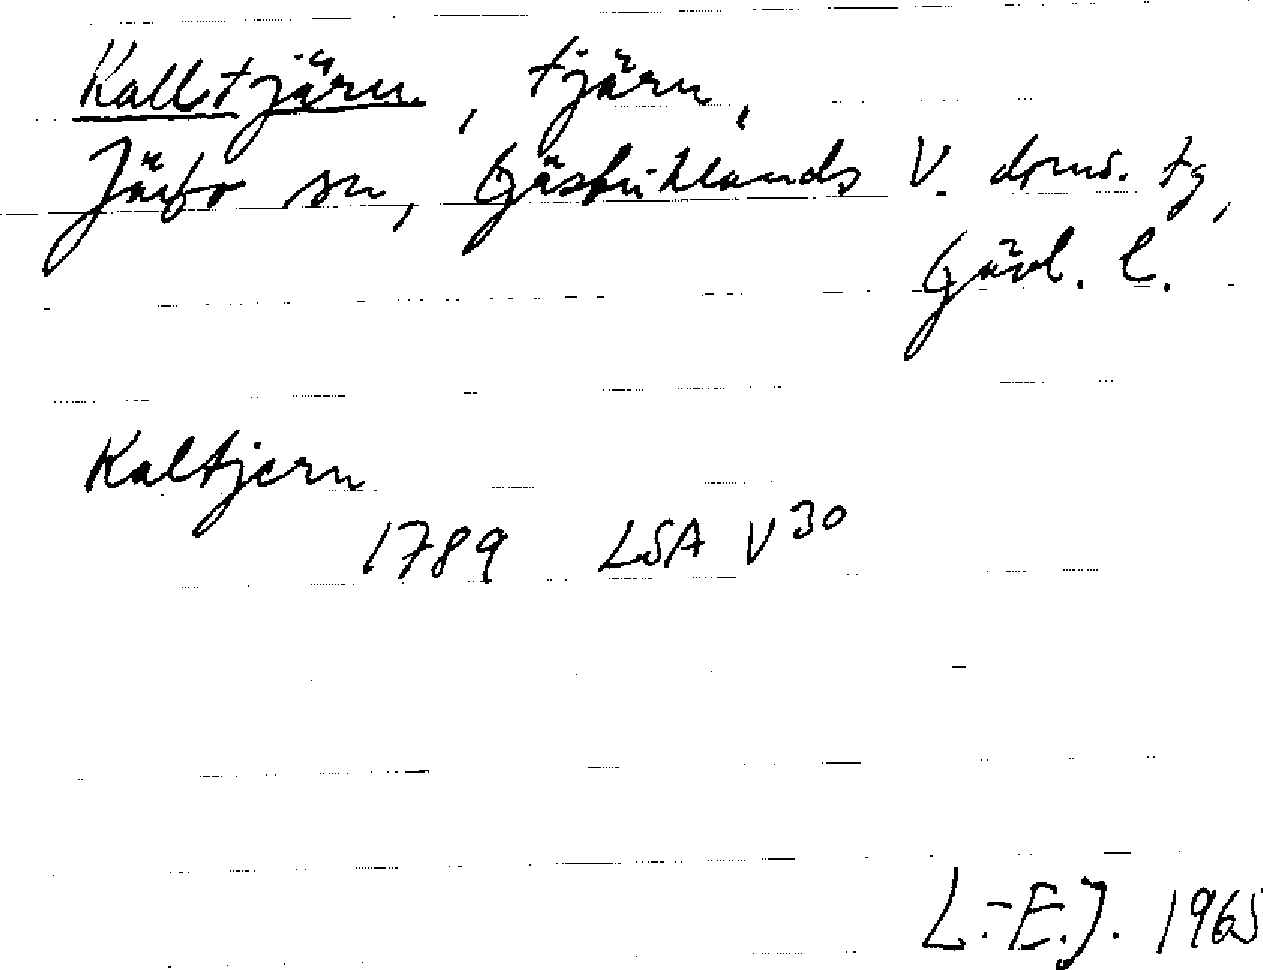 Kalltjärn, tjärn,
Järbo sn, Gästriklands V. doms. tg,
Gävl. l.
Kaltjern
1789 LSA V30
L.-E.J. 1965